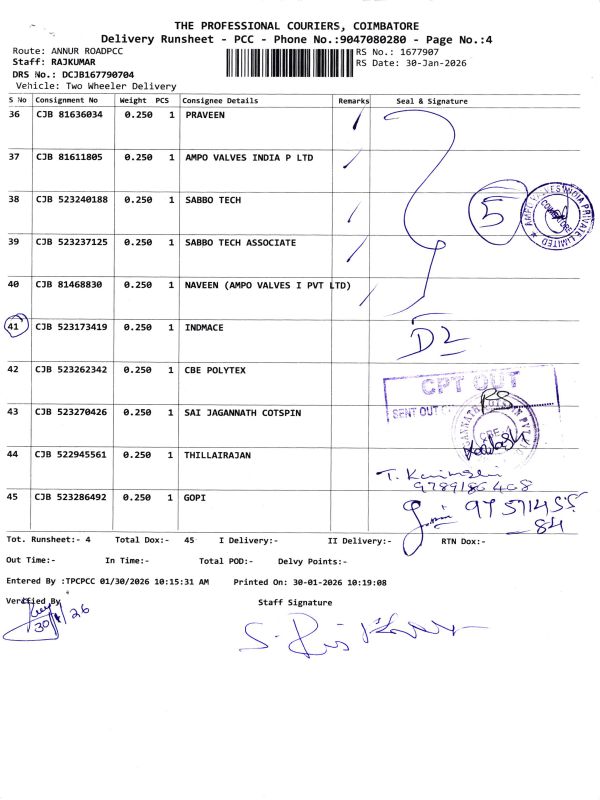 THE PROFESSIONAL COURIERS, COIMBATORE
Delivery Runsheet - PCC - Phone No.:9047080280 - Page No.:4
Route: ANNUR ROADPCC
RS No.: 1677907
Staff: RAJKUMAR
RS Date: 30-Jan-2026
DRS No.: DCJB167790704
Vehicle: Two Wheeler Delivery
S No Consignment No Weight PCS Consignee Details Remarks Seal & Signature
36 CJB 81636034 0.250 1 PRAVEEN
37 CJB 81611805 0.250 1 AMPO VALVES INDIA P LTD
38 CJB 523240188 0.250 1 SABBO TECH
5
AMPO VALVES INDIA PRIVATE LIMITED
COIMBATORE
39 CJB 523237125 0.250 1 SABBO TECH ASSOCIATE
40 CJB 81468830 0.250 1 NAVEEN (AMPO VALVES I PVT LTD)
41 CJB 523173419 0.250 1 INDMACE
D2
42 CJB 523262342 0.250 1 CBE POLYTEX
CPT OUT
SENT OUT
43 CJB 523270426 0.250 1 SAI JAGANNATH COTSPIN
44 CJB 522945561 0.250 1 THILLAIRAJAN
9789186468
45 CJB 523286492 0.250 1 GOPI
84
Tot. Runsheet:- 4 Total Dox:- 45 I Delivery:- II Delivery:- RTN Dox:-
Out Time:- In Time:- Total POD:- Delvy Points:-
Entered By :TPCPCC 01/30/2026 10:15:31 AM Printed On: 30-01-2026 10:19:08
Verified By
Staff Signature
30/1/26